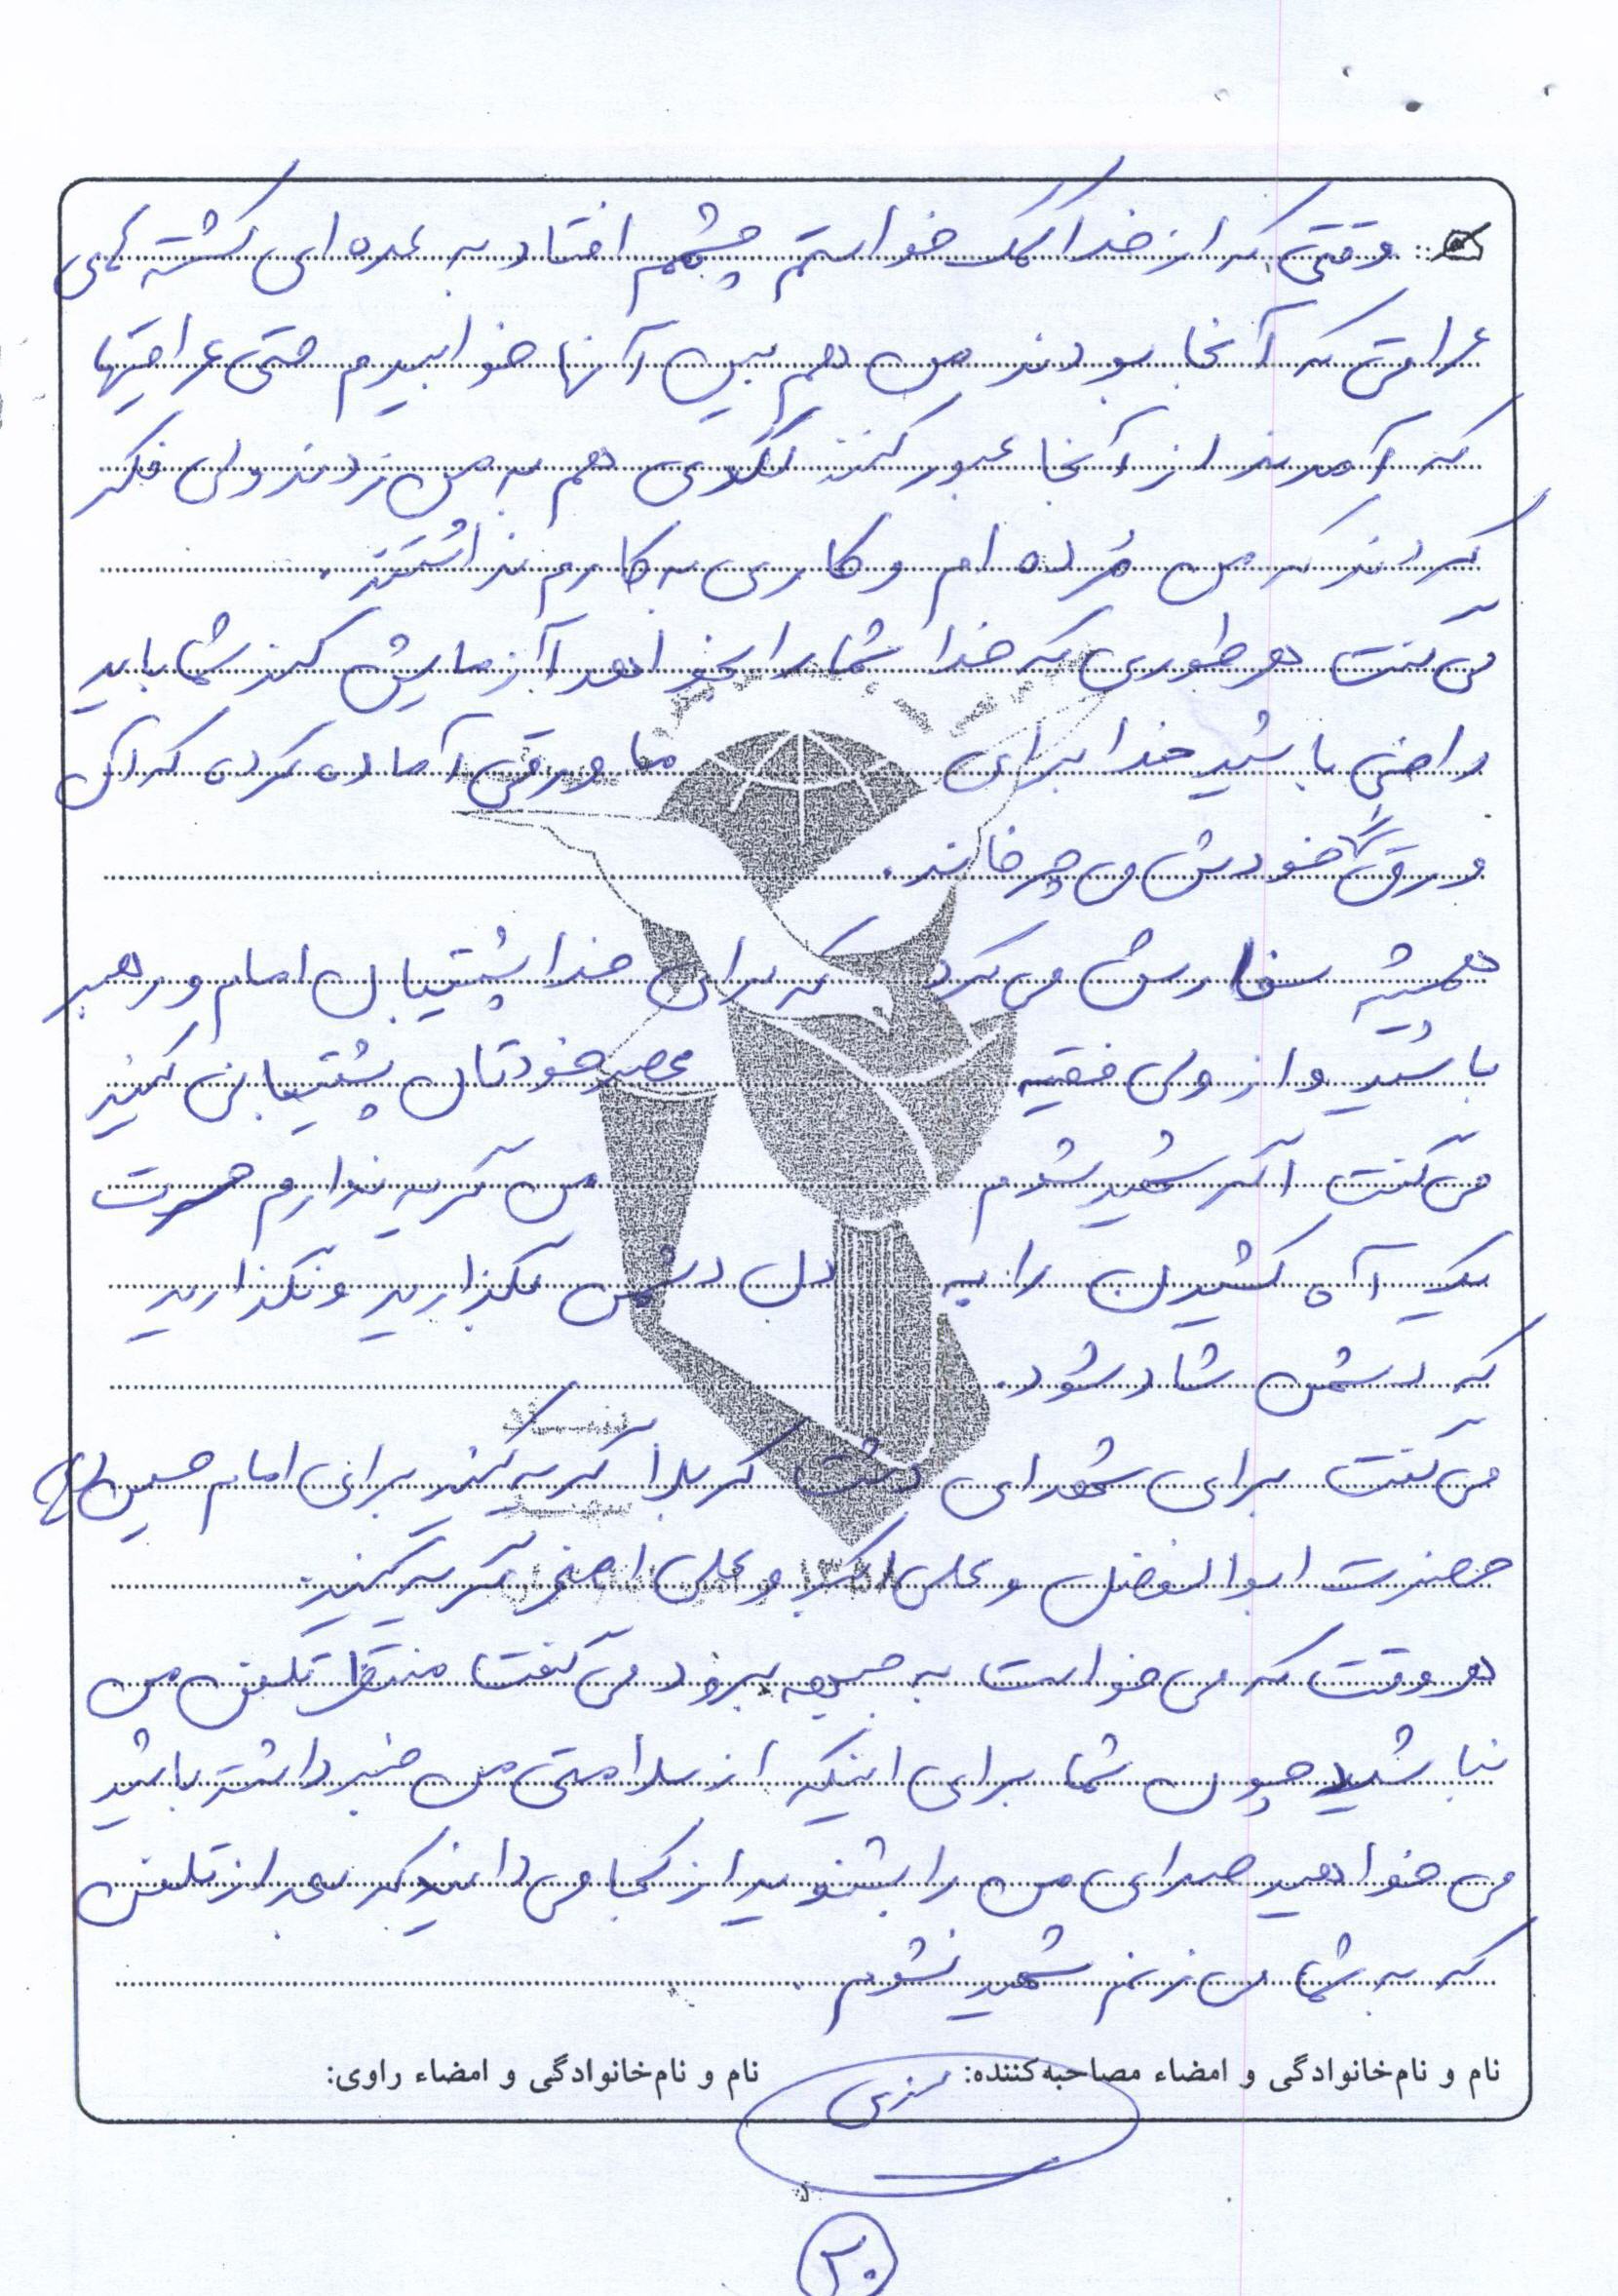 وقتی که از خدا کمک خواستم چشمم افتاد به عده ای کشته های
عراقی که آنجا بودند من هم بین آنها خوابیدم حتی عراقیها
که آمدند از آنجا عبور کنند لگدی هم به من زدند ولی فکر
کردند که من مُرده ام و کاری به کارم نداشتند.
می گفت هر طوری که خدا شما را بخواهد آزمایش کند شما باید
راضی باشید خدا برای ما ورقی آماده کرده که آن
ورق را خودش می چرخاند.
همیشه سفارش می کرد که برای خدا پشتیبان امام و رهبر
باشید و از ولی فقیه عصر خودتان پشتیبانی کنید
می گفت اگر شهید شدم من گریه ندارم حسرت
یک آه کشیدن را به دل دشمن بگذارید و نگذارید
که دشمن شاد شود.
می گفت برای شهدای دشت کربلا گریه کنید برای امام حسین (ع)
حضرت ابوالفضل و علی اکبر و علی اصغر گریه کنید.
هر وقت که می خواست به جبهه برود می گفت منتظر تلفن من
نباشید چون شما برای اینکه از سلامتی من خبر داشته باشید
می خواهید صدای من را بشنوید از کجا می دانید که بعد از تلفن
که به شما می زنم شهید نشوم.
نام و نام‌خانوادگی و امضاء مصاحبه‌کننده: نام و نام‌خانوادگی و امضاء راوی:
۳۰